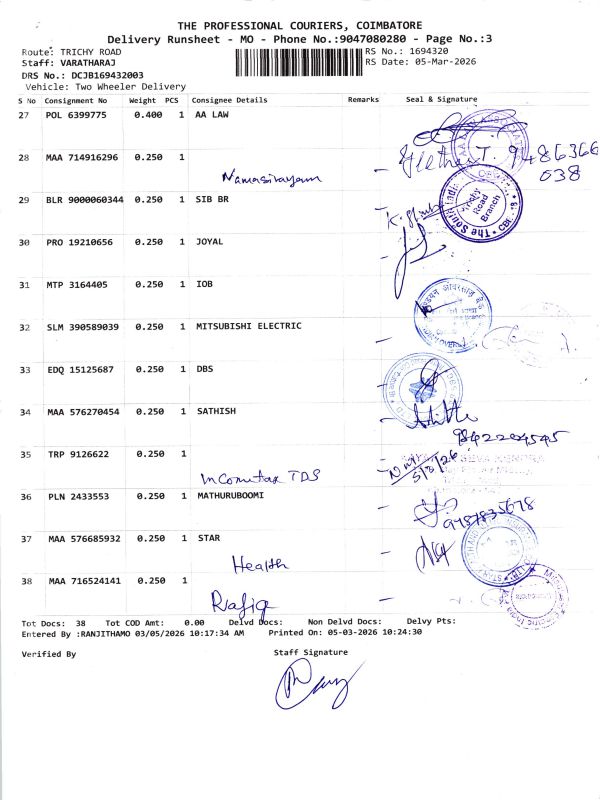 THE PROFESSIONAL COURIERS, COIMBATORE
Delivery Runsheet - MO - Phone No.:9047080280 - Page No.:3
Route: TRICHY ROAD
RS No.: 1694320
Staff: VARATHARAJ
RS Date: 05-Mar-2026
DRS No.: DCJB169432003
Vehicle: Two Wheeler Delivery
S No Consignment No Weight PCS Consignee Details Remarks Seal & Signature
27 POL 6399775 0.400 1 AA LAW
28 MAA 714916296 0.250 1
Namasivayam
9486366
038
29 BLR 9000060344 0.250 1 SIB BR
The South India
Trichy Road Branch
CBE
30 PRO 19210656 0.250 1 JOYAL
31 MTP 3164405 0.250 1 IOB
32 SLM 390589039 0.250 1 MITSUBISHI ELECTRIC
33 EDQ 15125687 0.250 1 DBS
34 MAA 576270454 0.250 1 SATHISH
35 TRP 9126622 0.250 1
Incometax TDS
5/3/26
36 PLN 2433553 0.250 1 MATHURUBOOMI
9787835678
37 MAA 576685932 0.250 1 STAR
Health
38 MAA 716524141 0.250 1
Rafiq
Tot Docs: 38 Tot COD Amt: 0.00 Delvd Docs: Non Delvd Docs: Delvy Pts:
Entered By :RANJITHAMO 03/05/2026 10:17:34 AM Printed On: 05-03-2026 10:24:30
Verified By
Staff Signature